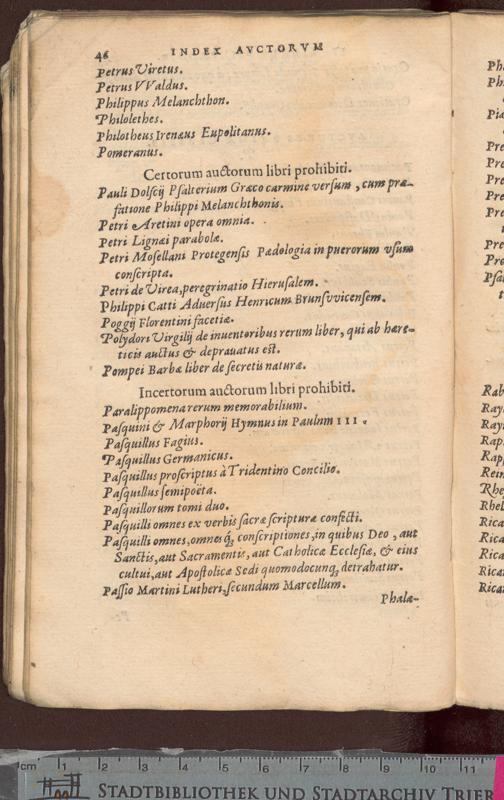 46 INDEX AVCTORVM
Petrus Viretus.
Petrus VValdus.
Philippus Melanchthon.
Philolethes.
Philotheus Irenæus Eupolitanus.
Pomeranus.
Certorum auctorum libri prohibiti.
Pauli Dolscij Psalterium Græco carmine versum, cum præ-
fatione Philippi Melanchthonis.
Petri Aretini opera omnia.
Petri Lignæi parabolæ.
Petri Mosellani Protegensis Pædologia in puerorum vsum
conscripta.
Petri de Virea, peregrinatio Hierusalem.
Philippi Catti Aduersus Henricum Brunsvvicensem.
Poggij Florentini facetiæ.
Polydori Virgilij de inuentoribus rerum liber, qui ab hære-
ticis auctus & deprauatus est.
Pompei Barbæ liber de secretis naturæ.
Incertorum auctorum libri prohibiti.
Paralippomena rerum memorabilium.
Pasquini & Marphorij Hymnus in Paulum III.
Pasquillus Fagius.
Pasquillus Germanicus.
Pasquillus proscriptus à Tridentino Concilio.
Pasquillus semipoëta.
Pasquillorum tomi duo.
Pasquilli omnes ex verbis sacræ scripturæ confecti.
Pasquilli omnes, omnesq́; conscriptiones, in quibus Deo, aut
Sanctis, aut Sacramentis, aut Catholicæ Ecclesiæ, & eius
cultui, aut Apostolicæ Sedi quomodocunq; detrahatur.
Passio Martini Lutheri, secundum Marcellum.
Phala-
Ph
Ph
Pia
Pre
Pre
Pre
Pre
Pre
Pre
Psa
Rab
Ray
Ray
Rap
Rap
Rein
Rhe
Rhel
Rica
Rica
Rica
Rica
Rica
cm 1 2 3 4 5 6 7 8 9 10 11
STADTBIBLIOTHEK UND STADTARCHIV TRIER